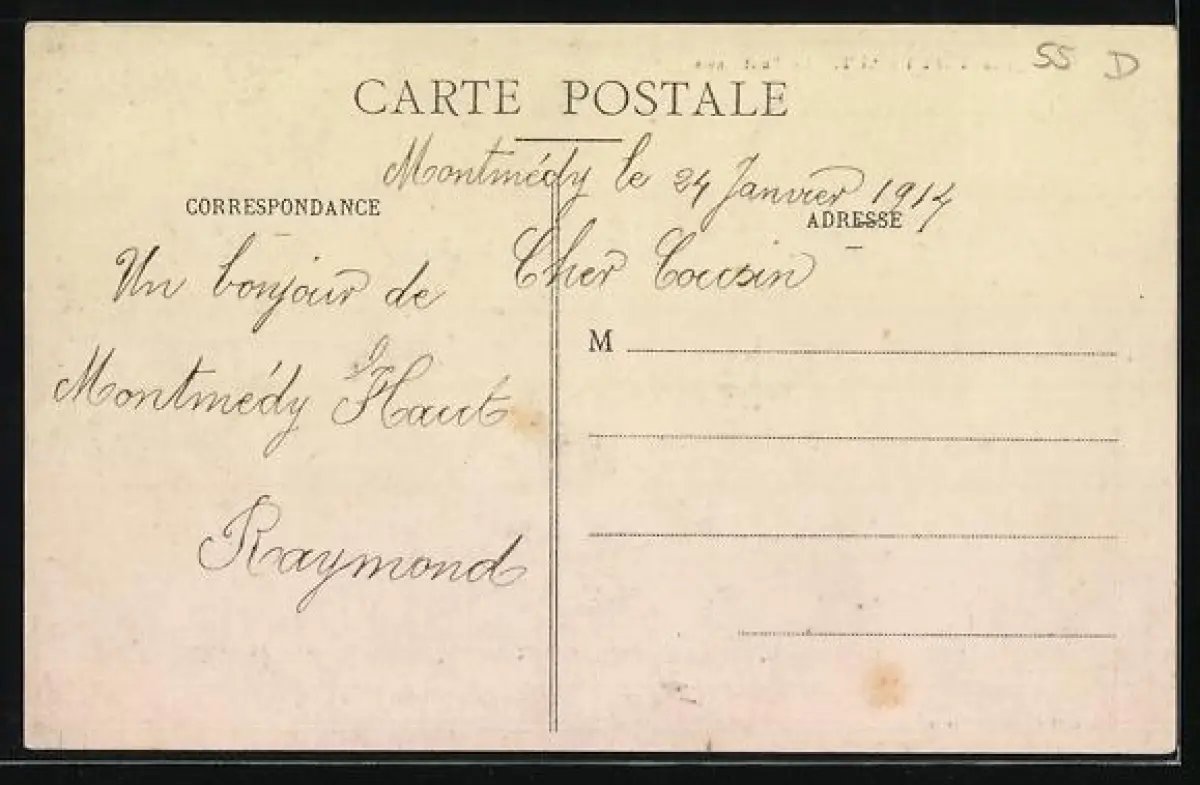 55 D
CARTE POSTALE
Montmédy le 24 Janvier 1914
CORRESPONDANCE
ADRESSE
Cher Cousin
Un bonjour de
Montmédy Haut
Raymond
M